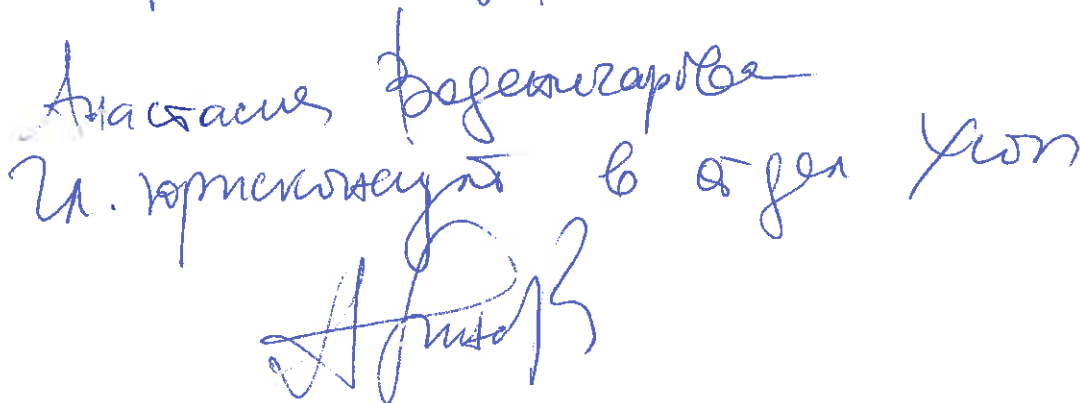 Анастасия Воденичарова
Гл. юрисконсулт в отдел